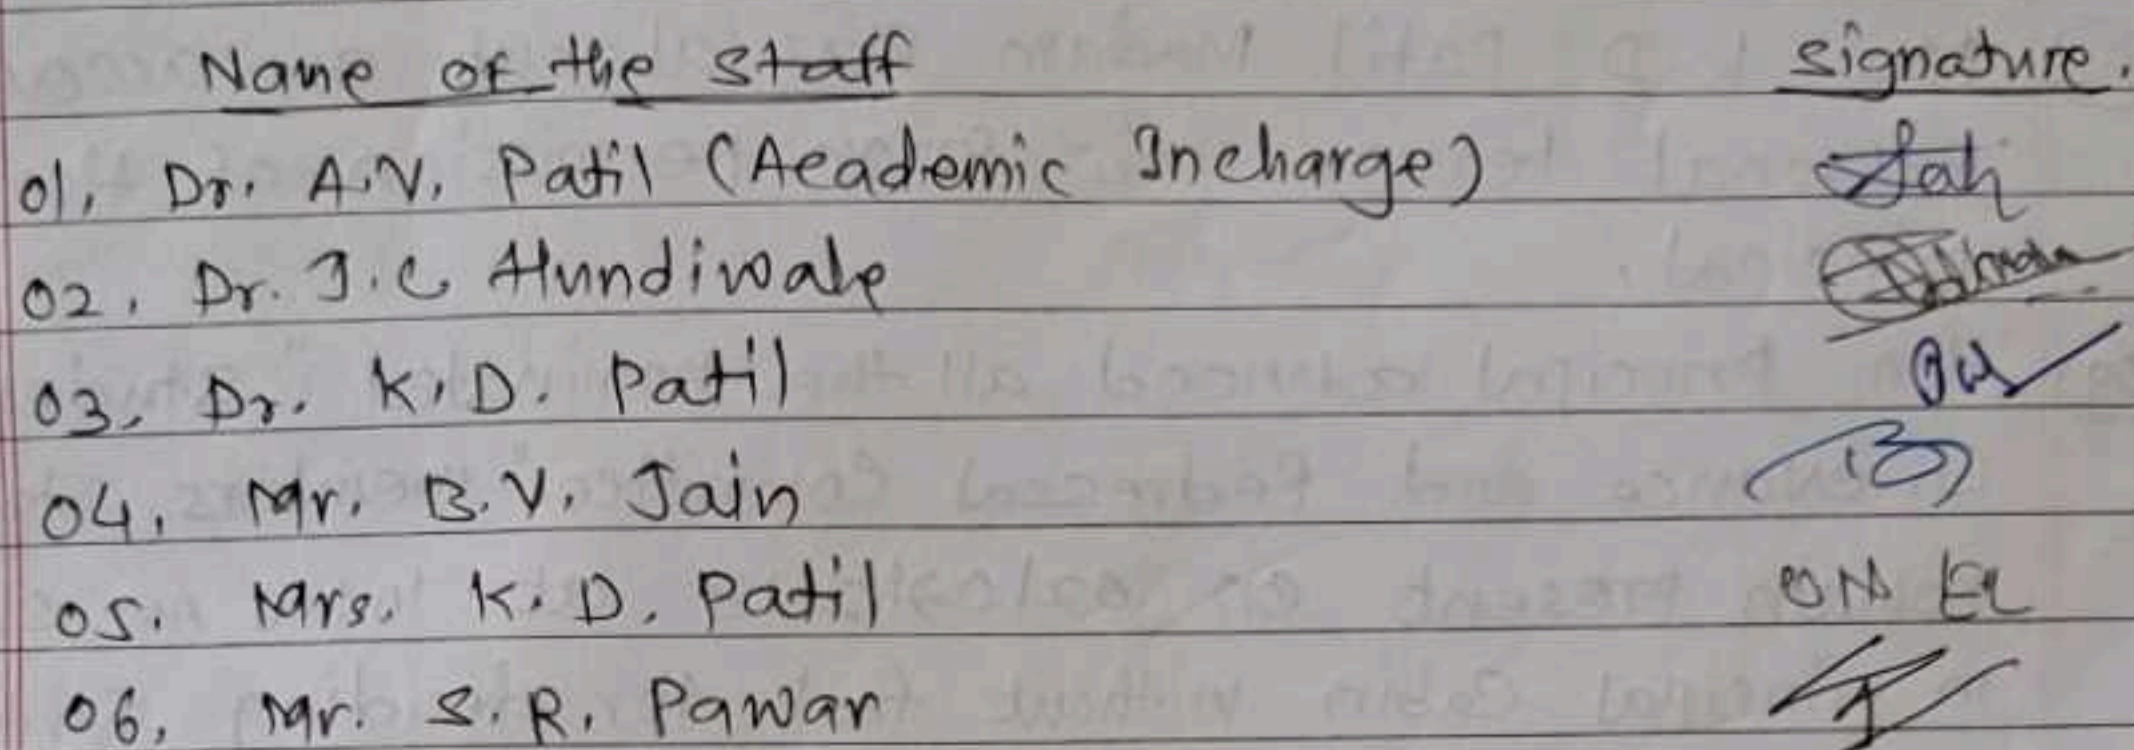 Name of the Staff signature.
01. Dr. A.V. Patil (Academic Incharge)
02. Dr. J.C Hundiwale
03. Dr. K.D. Patil
04. Mr. B.V. Jain
05. Mrs. K.D. Patil ON EL
06. Mr. S.R. Pawar